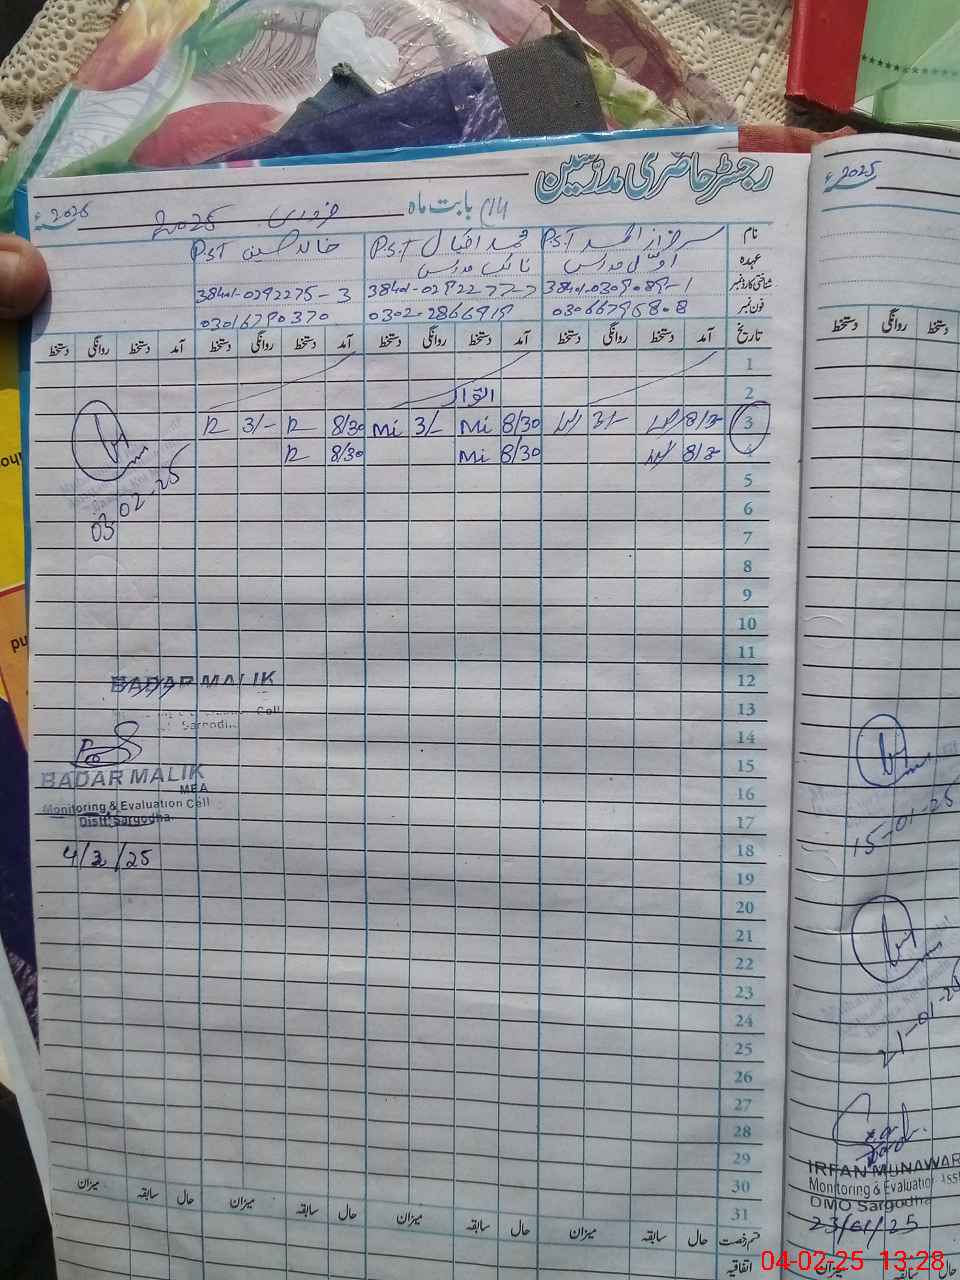 رجسٹر حاضری مدرسین
بابت ماہ فروری 2025ء
نام
سرفراز احمد PST
محمد اقبال PST
خالد حسین PST
عہدہ
اول مدرس
نائب مدرس
شناختی کارڈ نمبر
38401-0292275-3
فون نمبر
03066795808
0302-2866919
03016790370
تاریخ آمد دستخط روانگی دستخط آمد دستخط روانگی دستخط آمد دستخط روانگی دستخط آمد دستخط روانگی دستخط
1
2 اتوار
3 8/30 3/- 8/30 Mi 3/- Mi 8/30 R 3/- R
4 8/30 8/30 Mi 8/30 R
5
6
7
8
9
10
11
12
13
14
15
16
17
18
19
20
21
22
23
24
25
26
27
28
29
30
31
03-02-25
BADAR MALIK
BADAR MALIK
MEA
Monitoring & Evaluation Cell
Distt: Sargodha
4/2/25
حال سابقہ میزان حال سابقہ میزان حال سابقہ میزان حال سابقہ میزان
اتفاقیہ
2025ء
دستخط روانگی دستخط
15-01-25
21-01-25
IRFAN MUNAWAR
Monitoring & Evaluation Assi
DMO Sargodha
23/01/25
04-02-25 13:28